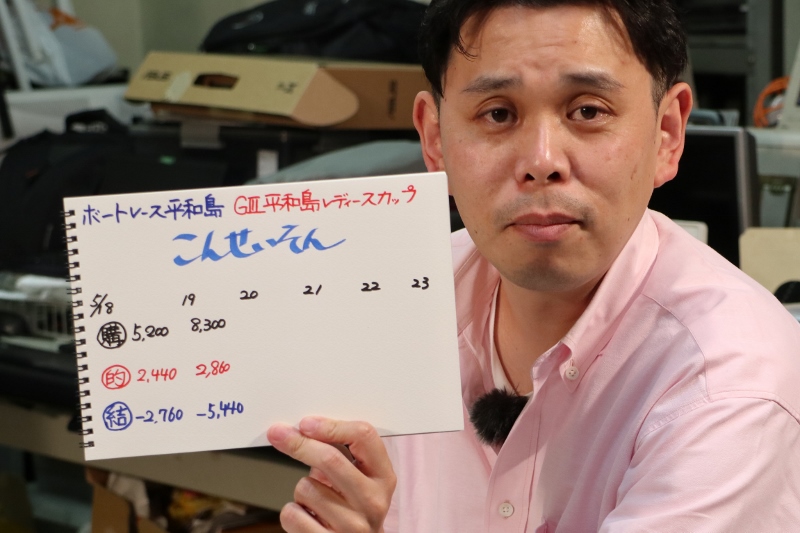 ボートレース平和島 GⅢ平和島レディースカップ
こんせいそん
5/18 19 20 21 22 23
購 5,200 8,300
的 2,440 2,860
結 -2,760 -5,440